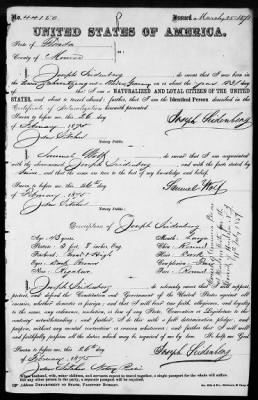 No 44150 Issued March 25 1875
UNITED STATES OF AMERICA.
State of Florida
County of Monroe
I, Joseph Seidenberg do swear that I was born in
on or about the
day of that I am a NATURALIZED AND LOYAL CITIZEN OF THE UNITED
STATES, and about to travel abroad; that I am the Identical Person described in the
Certificate of Naturalization herewith presented.
Sworn to before me this 26 day
of February 1875
Joseph Seidenberg
Notary Public.
I, Samuel Wolf do swear that I am acquainted
with the Joseph Seidenberg and with the facts stated by
him, and that the same are true to the best of my knowledge and belief.
Sworn to before me this 26th day
of February 1875
Samuel Wolf
Notary Public.
Description of Joseph Seidenberg
Age: 43 years
Stature: 5 feet inches Eng.
Forehead: High
Eyes: Dark Brown
Nose: Regular
Mouth: Large
Chin: Round
Hair: Dark
Complexion:
Face: Round
I, Joseph Seidenberg do solemnly swear that I will support,
protect, and defend the Constitution and Government of the United States against all
enemies, whether domestic or foreign; and that I will bear true faith, allegiance, and loyalty
to the same, any ordinance, resolution, or law of any State, Convention or Legislature to the
contrary notwithstanding; and further, that I do this with a full determination, pledge, and
purpose, without any mental reservation or evasion whatsoever; and further that I will well
and faithfully perform all the duties which may be required of me by law. So help me God.
Sworn to before me this 26th day
of February 1875
Joseph Seidenberg
Notary Public
When husband, wife, minor children, and servants expect to travel together, a single passport for the whole will suffice.
For any other person in the party, a separate passport will be required.
Address DEPARTMENT OF STATE, PASSPORT BUREAU.